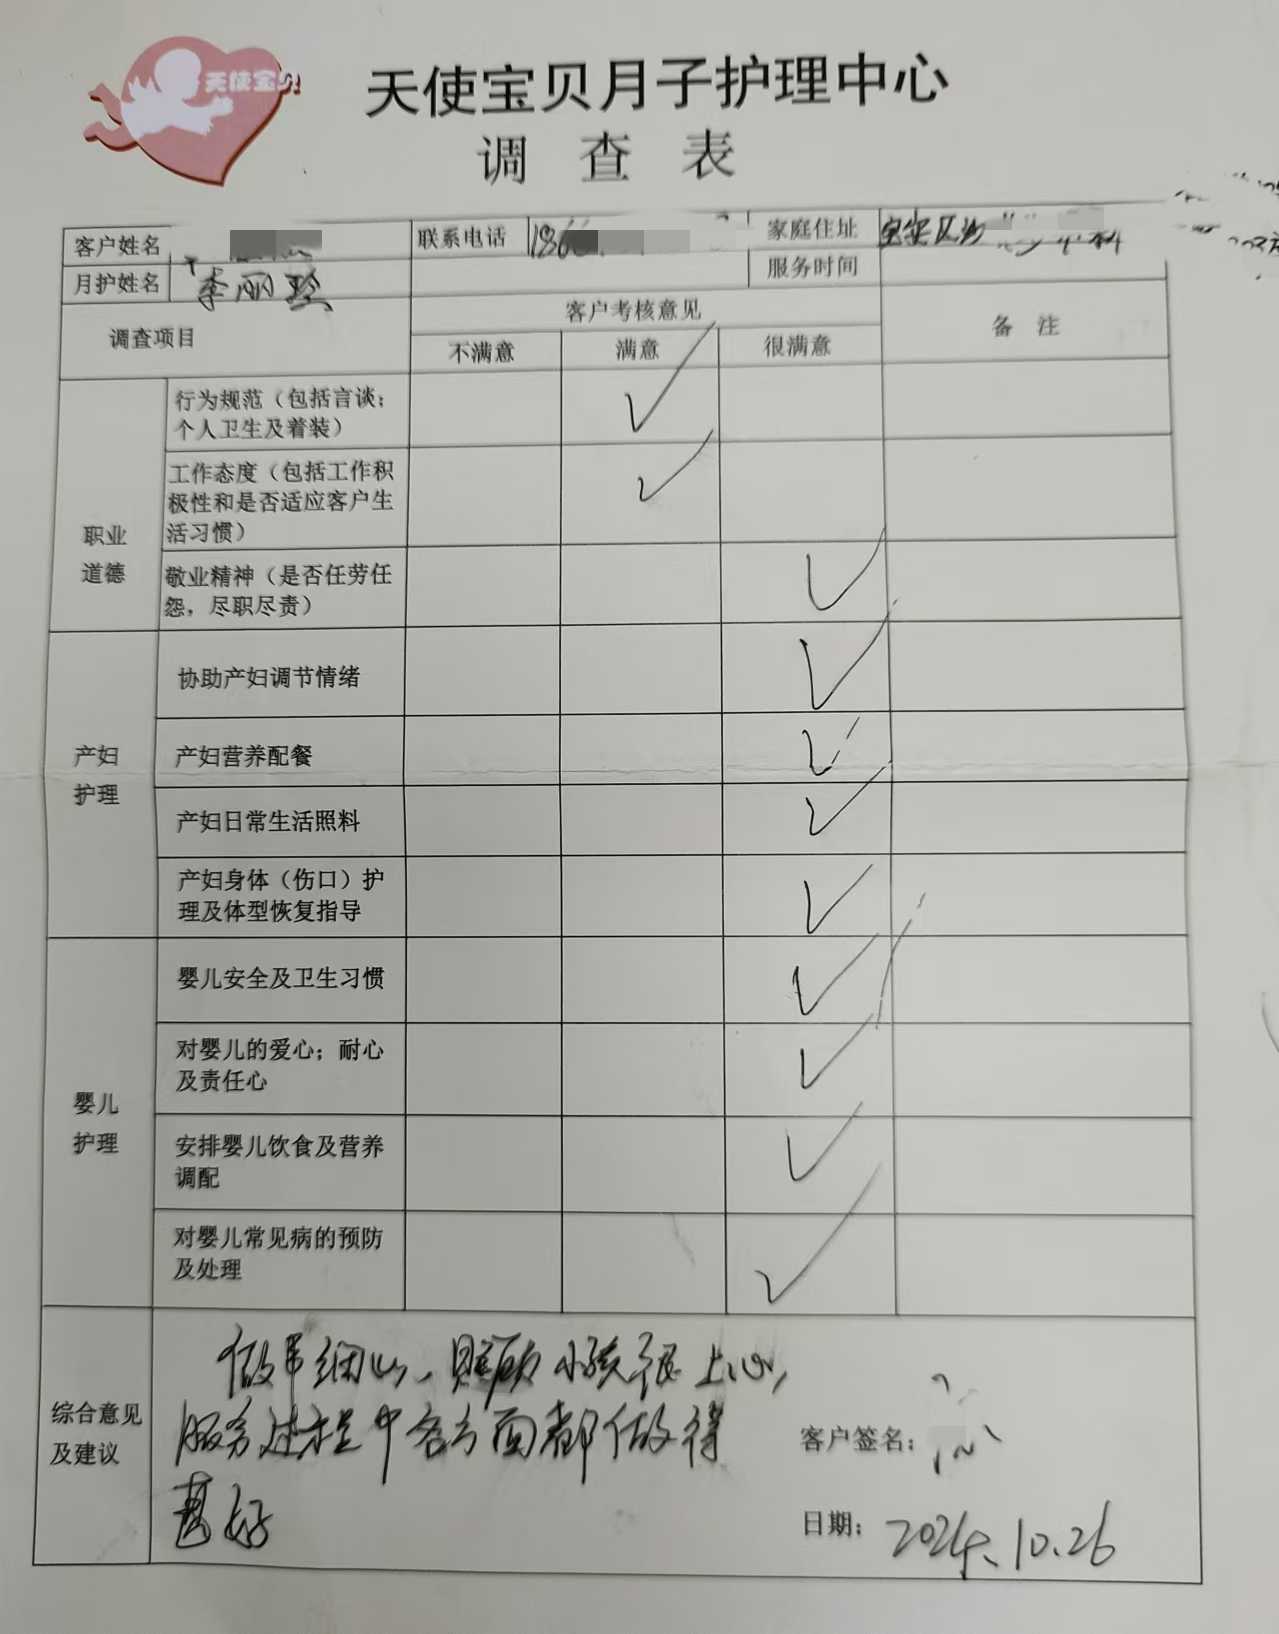 天使宝贝
天使宝贝月子护理中心
调 查 表
客户姓名 联系电话 家庭住址 宝安区沙
月护姓名 李丽玲 服务时间
调查项目 客户考核意见 备 注
不满意 满意 很满意
职业
道德
行为规范（包括言谈；
个人卫生及着装）
工作态度（包括工作积
极性和是否适应客户生
活习惯）
敬业精神（是否任劳任
怨，尽职尽责）
产妇
护理
协助产妇调节情绪
产妇营养配餐
产妇日常生活照料
产妇身体（伤口）护
理及体型恢复指导
婴儿
护理
婴儿安全及卫生习惯
对婴儿的爱心；耐心
及责任心
安排婴儿饮食及营养
调配
对婴儿常见病的预防
及处理
综合意见
及建议
做事细心，照顾小孩很上心，
服务过程中各方面都做得
甚好
客户签名：
日期：2024.10.26